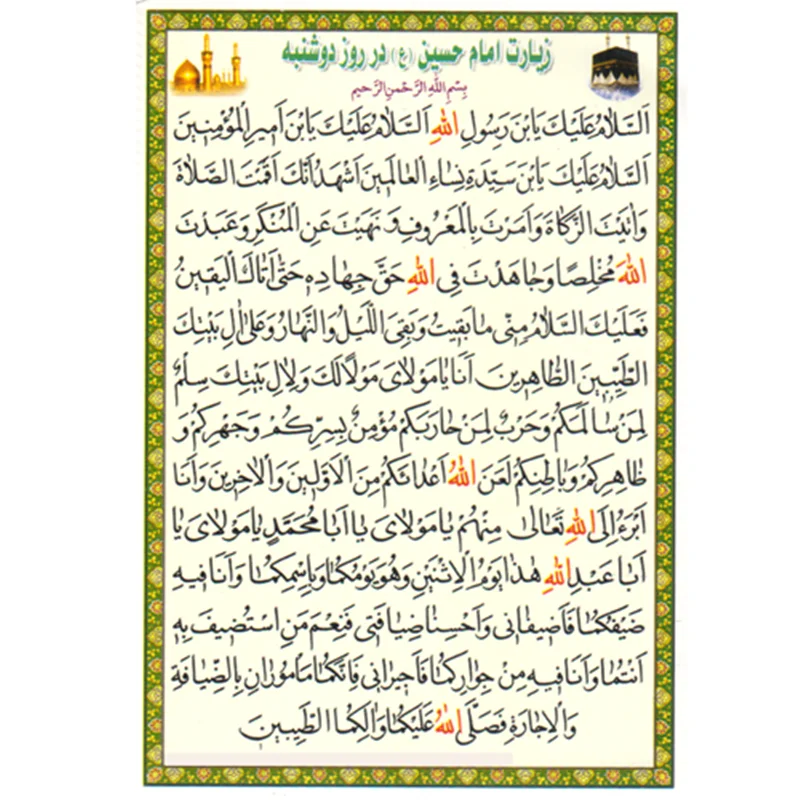 زیارت امام حسین (ع) در روز دوشنبه
بِسْمِ اللهِ الرَّحْمنِ الرَّحیمِ
اَلسَّلامُ عَلَیْكَ یَابْنَ رَسُولِ اللهِ اَلسَّلامُ عَلَیْكَ یَابْنَ اَمیرِ الْمُؤْمِنینَ
اَلسَّلامُ عَلَیْكَ یَابْنَ سَیِّدَةِ نِساءِ الْعالَمینَ اَشْهَدُ اَنَّكَ اَقَمْتَ الصَّلاةَ
وَاتَیْتَ الزَّكاةَ وَاَمَرْتَ بِالْمَعْرُوفِ وَ نَهَیْتَ عَنِ الْمُنْكَرِ وَ عَبَدْتَ
اللهَ مُخْلِصًا وَجاهَدْتَ فِی اللهِ حَقَّ جِهادِهِ حَتّٰی اَتاكَ الْیَقینُ
فَعَلَیْكَ السَّلامُ مِنّی ما بَقیتُ وَبَقِیَ اللَّیْلُ وَالنَّهارُ وَعَلٰی الِ بَیْتِكَ
الطَّیِّبینَ الطّاهِرینَ اَنَا یا مَوْلایَ مَوْلًا لَكَ وَ لِالِ بَیْتِكَ سِلْمٌ
لِمَنْ سالَمَكُمْ وَ حَرْبٌ لِمَنْ حارَبَكُمْ مُؤْمِنٌ بِسِرِّكُمْ وَ جَهْرِكُمْ وَ
ظاهِرِكُمْ وَ باطِنِكُمْ لَعَنَ اللهُ اَعْدائَكُمْ مِنَ الْاَوَّلینَ وَالْاخِرینَ وَ اَنَا
اَبْرَءُ اِلَی اللهِ تَعالٰی مِنْهُمْ یا مَوْلایَ یا اَبا مُحَمَّدٍ یا مَوْلایَ یا
اَبا عَبْدِ اللهِ هٰذا یَوْمُ الْاِثْنَیْنِ وَهُوَ یَوْمُكُما وَبِاسْمِكُما وَ اَنَا فیهِ
ضَیْفُكُما فَاَضیفانی وَ اَحْسِنا ضِیافَتی فَنِعْمَ مَنِ اسْتُضیفَ بِهِ
اَنْتُما وَ اَنَا فیهِ مِنْ جِوارِكُما فَاَجیرانی فَاِنَّكُما مَاْمُورانِ بِالضِّیافَةِ
وَالْاِجارَةِ فَصَلَّی اللهُ عَلَیْكُما وَ الِكُمَا الطَّیِّبینَ